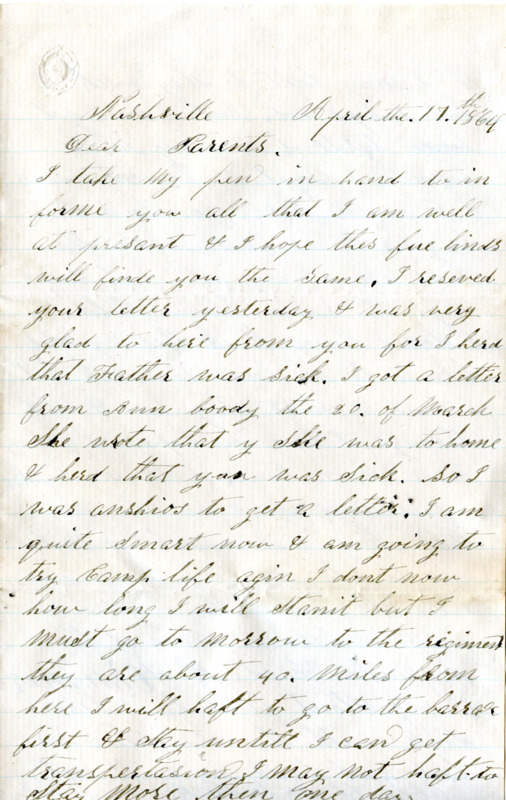 Nashville April the. 17.th 1864
Dear Parents.
I take My pen in hand to in
forme you all that I am well
at presant & I hope thes fue linds
will finde you the Same. I reseved
your letter yesterday & was very
glad to here from you for I herd
that Father was Sick. I got a letter
from Ann boody the 20. of March
She wrote that y She was to home
& herd that you was Sick. So I
was anshios to get a letter. I am
quite Smart now & am going to
try Camp life agin I dont now
how long I will Stanit but I
Must go to Morrow to the regiment
they are about 40. Miles from
here I will haft to go to the barrak
first & Stay untill I can get
transpertasion I may not haft to
Stay More then one day.